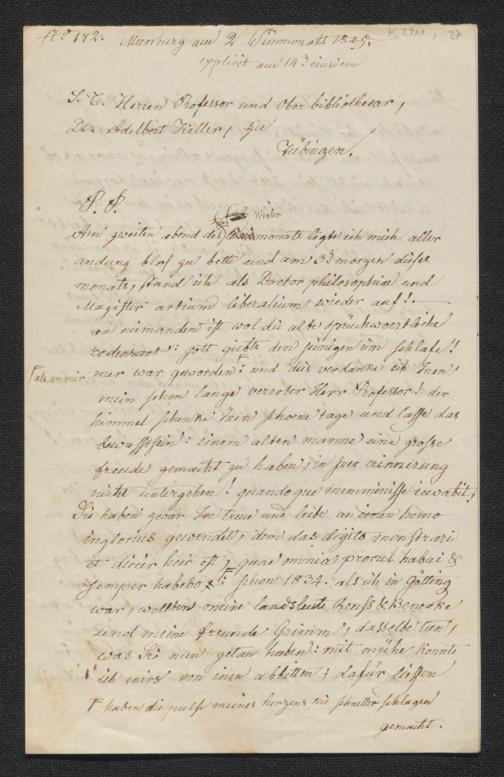 N.º 172. Meersburg am 2 Winmonats 1845.
explicit am 14ᵗ eiusdem
S. T. Herren Professor und Ober bibliothecar,
Dr. Adelbert Keller, zu
Tübingen.
P. P.
Winter
Am zweiten abend des monats legte ich mich aller
andung blos zu bette und am 3 morgen dises
monats, stand ich als Doctor philosophiae und
Magister artium liberalium wieder auf! —
an niemanden ist wol die alte sprüchwoertliche
redensart: gott giebts den seinigen im schlafe!
⌈als an mir
mer war geworden⌈: und dis verdanke ich Inen
mein schon lange vererter Herr Professor! der
himmel schenke Inen schoene tage und lasse das
bewustsein: einem alten manne eine grosse
freude gemacht zu haben, in irer erinnerung
nicht untergehen! quandoque meminisse iuvabit;
Sie haben zwar Ire treue und liebe an einen homo
inglorius gewendet, dem das digito monstrari
et dicier heic est, quae omnia procul habui &
semper habebo ⌈: schon 1834. als ich in Götting
war, wollten meine landsleute Reuss & Benecke
und meine freunde Grimm, dasselbe tun,
was Sie nun getan haben: mit mühe konnte
ich mirs von inen abbitten; dafür liessen
⌈ haben die pulse meines herzens sie schneller schlagen
gemacht.